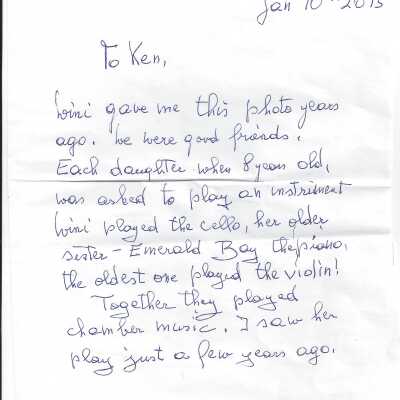 Jan 10th 2013
To Ken,
Wini gave me this photo years
ago. We were good friends.
Each daughter when 8 years old,
was asked to play an instriment
Wini played the cello, her older
sister - Emerald Bay the piano,
the oldest one played the violin!
Together they played
chamber music. I saw her
play just a few years ago.